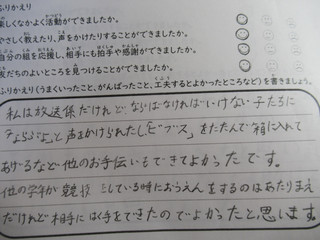 ふりかえり
楽しくなかよく活動ができましたか。
やさしく教えたり、声をかけたりすることができましたか。
自分の組を応援し、相手にも拍手や感謝ができましたか。
友だちのよいところを見つけることができましたか。
ふりかえり(うまくいったこと、がんばったこと、工夫するとよかったところなど)を書きましょう。
私は放送係だけれど、ならばなければいけない子たちに
「ならぼうよ」と声をかけられたし、「ビブス」をたたんで箱に入れて
あげるなど他のお手伝いもできてよかったです。
他の学年が競技をしている時におうえんをするのはあたりまえ
だけれど相手にはく手をできたのでよかったと思います。